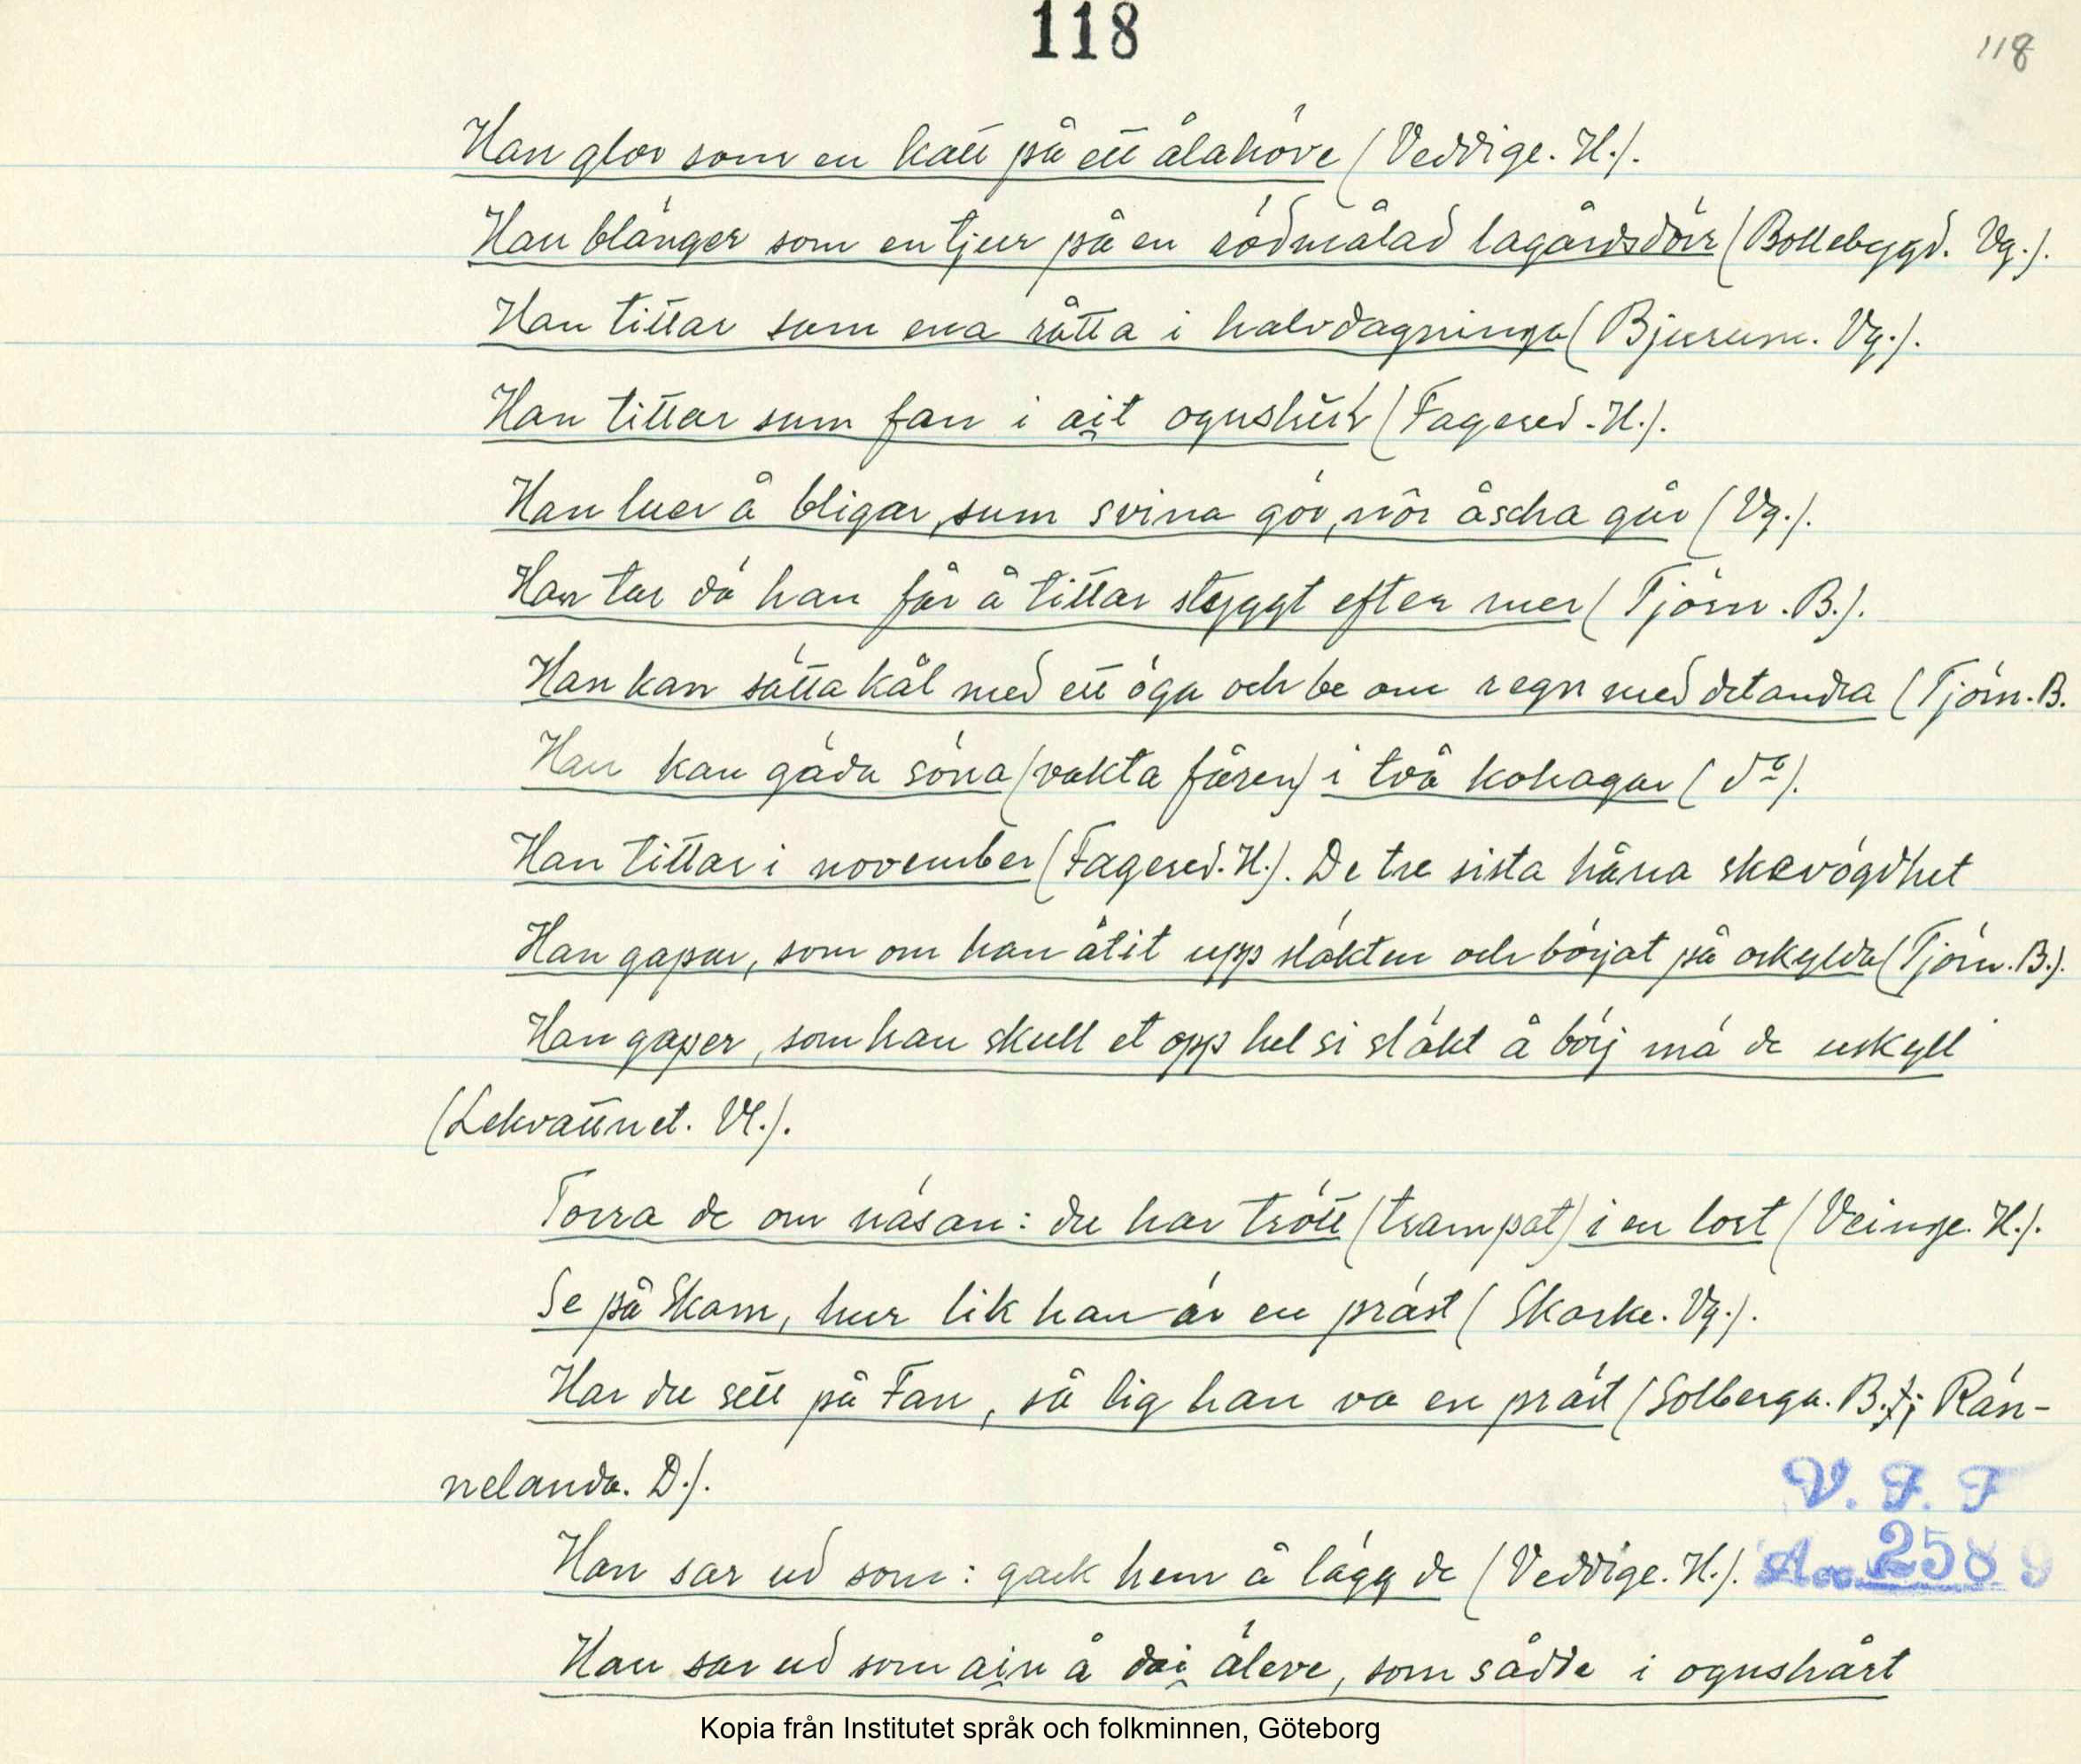 118
118
Han glor som en katt på ett ålahöve (Veddige. H.).
Han blänger som en tjur på en rödmålad lagårdsdörr (Bollebygd. Vg.).
Han tittar som ena råtta i halvdagninga (Bjurum. Vg.).
Han tittar sum fan i ait ognshål (Fagered. H.).
Han luer å bligar, sum svina gör, når åscha går (Vg.).
Han tar dä han får å tittar styggt efter mer (Tjörn. B.).
Han kan sätta kål med ett öga och be om regn med det andra (Tjörn. B.
Han kan gäda söna (vakta fåren) i två kohagar (do).
Han tittar i november (Fagered. H.). De tre sista håna skevögdhet
Han gapar, som om han ätit upp släkten och börjat på oskylda (Tjörn. B.).
Han gaper, som han skull et opp hel si släkt å börj mä de uskyll
(Lekvattnet. Vl.).
Torra de om näsan: du har trött (trampat) i en lort (Veinge. H.).
Se på Skam, hur lik han är en präst (Skarke. Vg.).
Har du sett på Fan, så lig han va en präst (Solberga. B.; Rän-
nelanda. D.).
V. F. F
Han sar ud som: gack hem å lägg de (Veddige. H.). Acc. 2589
Han sar ud som ain å dai äleve, som sådde i ognshårt
Kopia från Institutet språk och folkminnen, Göteborg